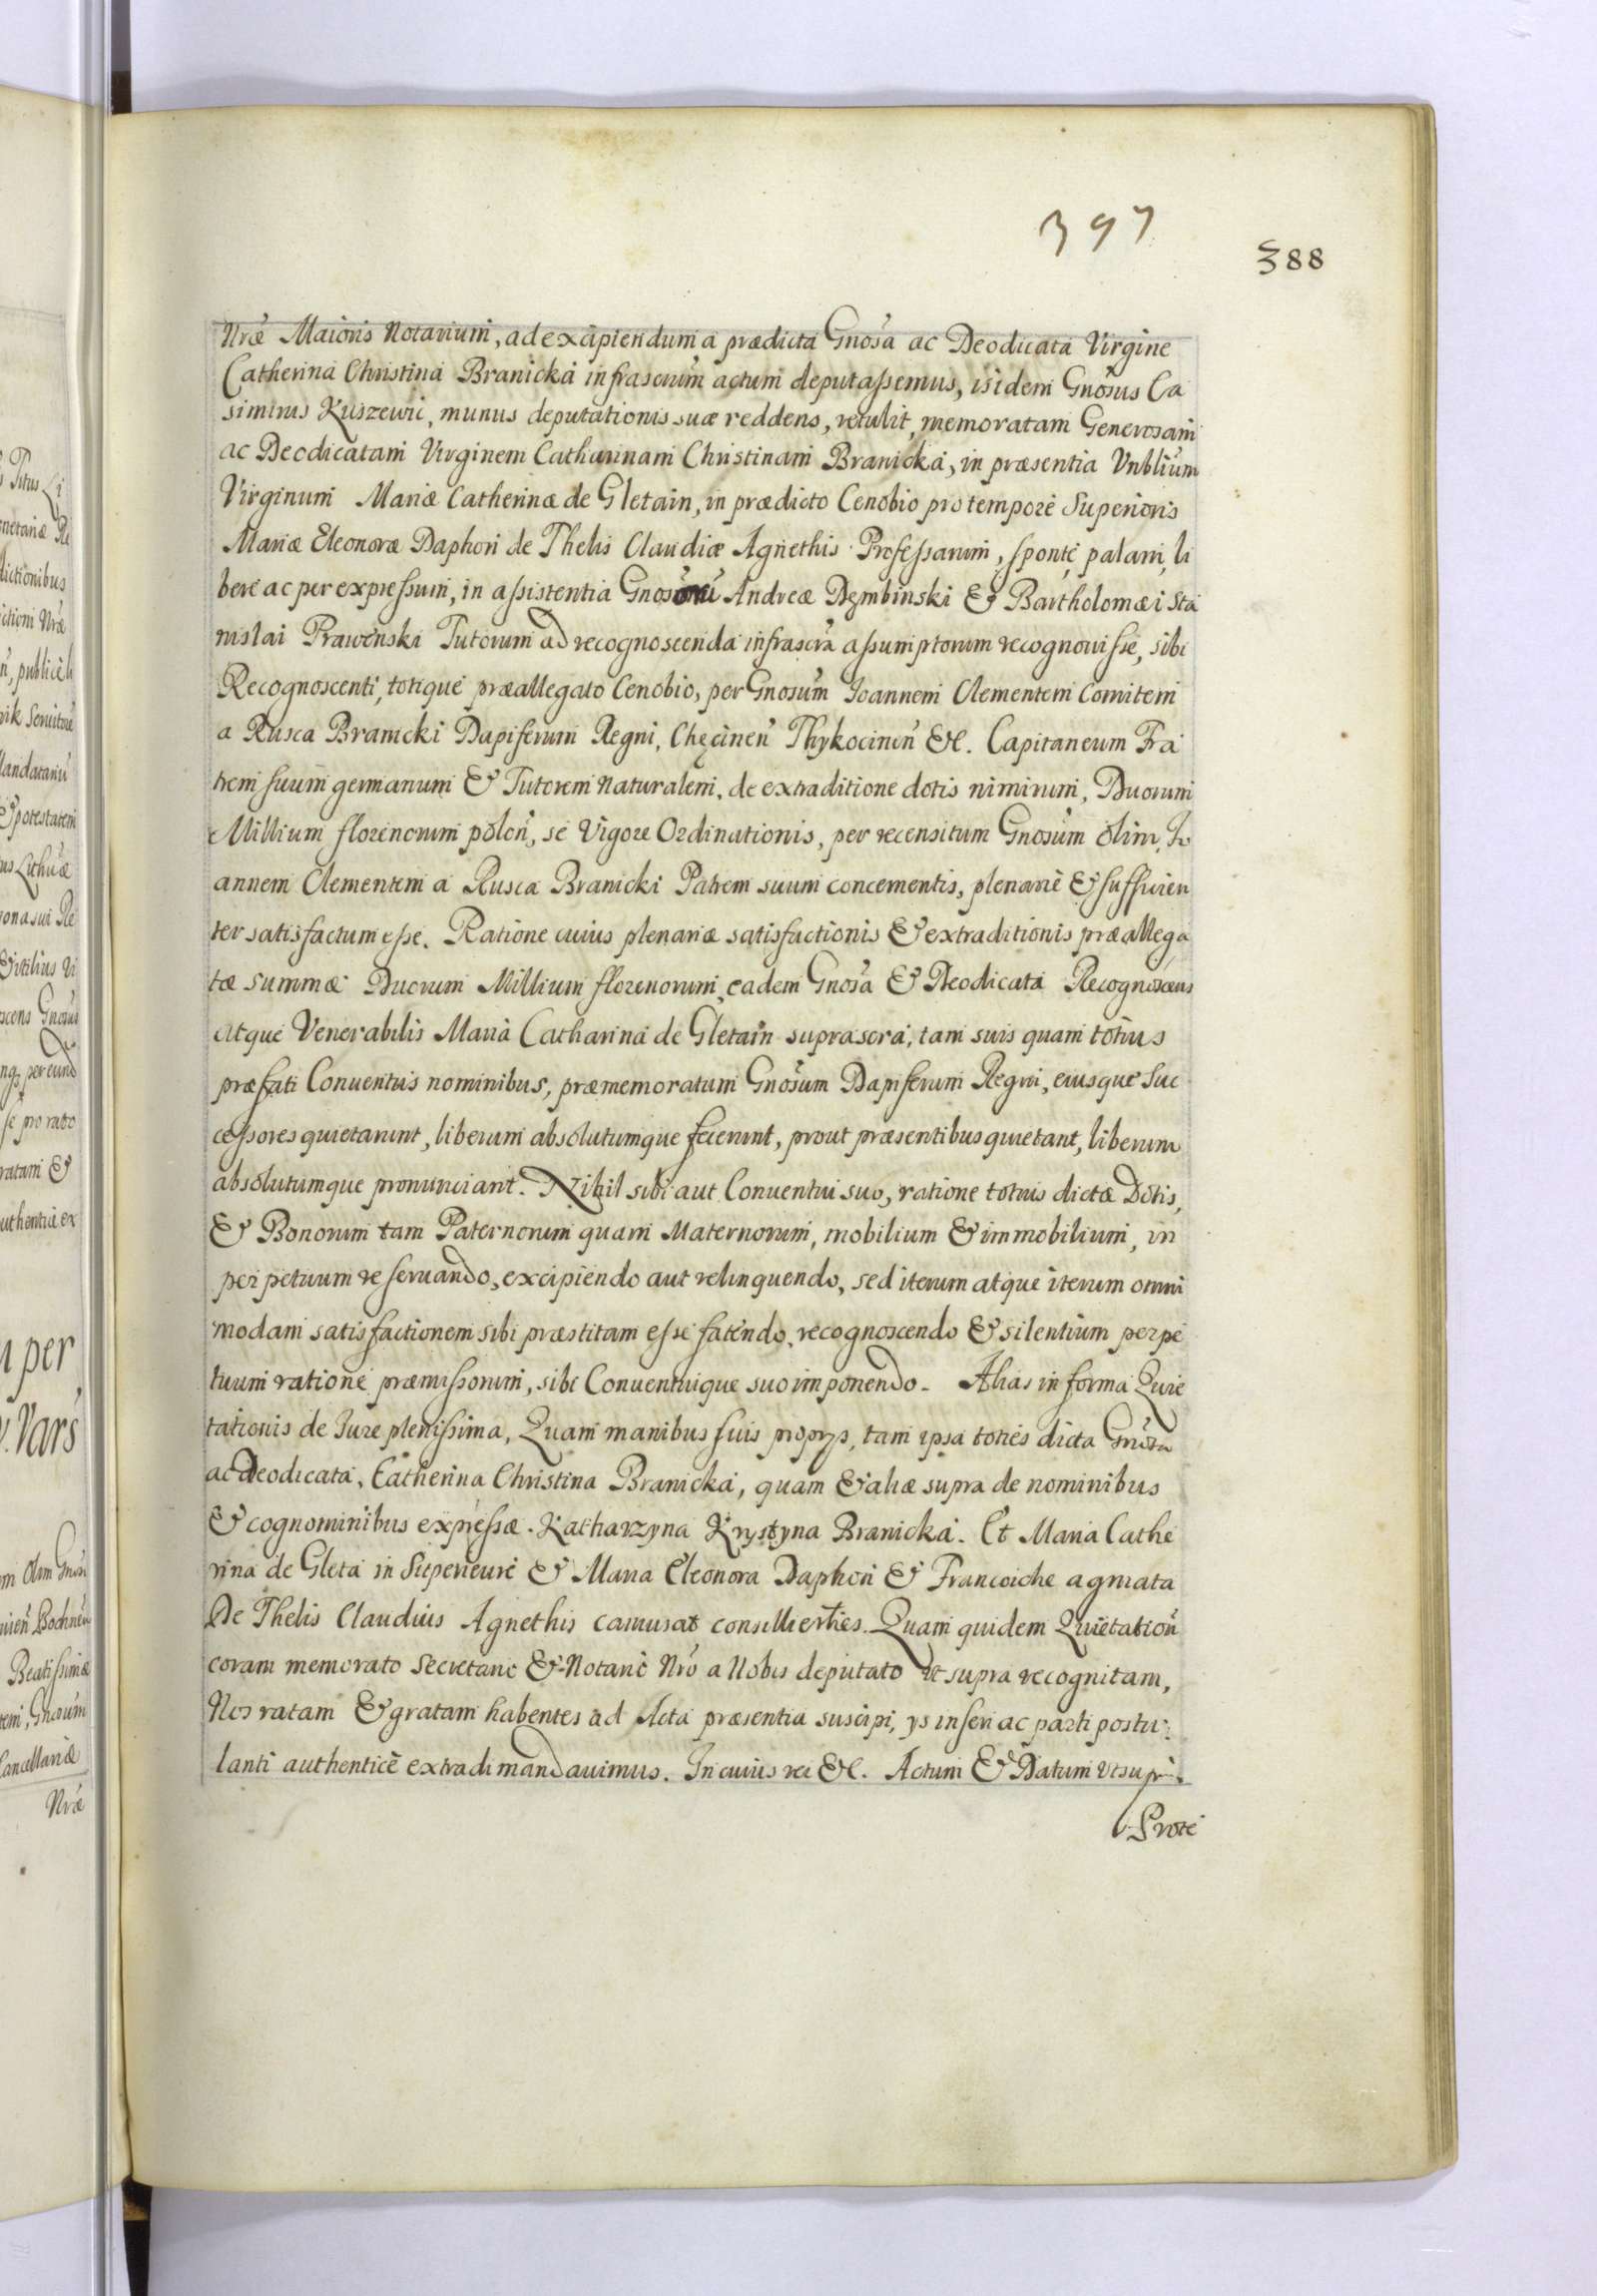 397
388
Nrae Maioris Notarium, ad excipiendum a praedicta Gnosa ac Deodicata Virgine
Catherina Christina Branicka infrascrum actum deputassemus, isidem Gnosus Ca
simirus Kuszewic, munus deputationis suae reddens, retulit, memoratam Generosam
ac Deodicatam Virginem Catharinam Christinam Branicka, in praesentia Vnblium
Virginum Mariae Catherinae de Gletain, in praedicto Cenobio pro tempore Superioris
Mariae Eleonorae Daphon de Thelis Claudiae Agnethis Professarum, sponte, palam, li
bere ac per expressum, in assistentia Gnosoru Andreae Dembinski & Bartholomaei Sta
nislai Prawenski Tutorum ad recognoscenda infrascra assumptorum recognovisse, sibi
Recognoscenti, totique praeallegato Cenobio, per Gnosum Joannem Clementem Comitem
a Rusca Branicki Dapiferum Regni, Chęcinen Thykocinen &c. Capitaneum Fra
trem suum germanum & Tutorem Naturalem, de extraditione dotis nimirum, Duorum
Millium florenorum polon, se Vigore Ordinationis, per recensitum Gnosum olim Jo
annem Clementem a Rusca Branicki Patrem suum concernentis, plenarie & sufficien
ter satisfactum esse. Ratione cuius plenariae satisfactionis & extraditionis praeallega
tae summae Duorum Millium florenorum, eadem Gnosa & Deodicata Recognoscens
atque Venerabilis Maria Catharina de Gletain suprascra, tam suis quam totius
praefati Conuentus nominibus, praememoratum Gnosum Dapiferum Regni, eiusque Suc
cessores quietarunt, liberum absolutumque fecerunt, prout praesentibus quietant, liberum
absolutumque pronunciant. Nihil sibi aut Conuentui suo, ratione totius dictae Dotis,
& Bonorum tam Paternorum quam Maternorum, mobilium & immobilium, in
perpetuum reseruando, excipiendo aut relinquendo, sed iterum atque iterum omni
modam satisfactionem sibi praestitam esse fatendo, recognoscendo & silentium perpe
tuum ratione praemissorum, sibi Conuentuique suo imponendo. Alias in forma Quie
tationis de Jure plenissima, Quam manibus suis proprys, tam ipsa toties dicta Gnosa
ac deodicata, Catherina Christina Branicka, quam & aliae supra de nominibus
& cognominibus expressae. Katharzyna Krystyna Branicka. Et Maria Cathe
rina de Gleta in Superieure & Maria Eleonora Daphon & Francoiche agmata
De Thelis Claudius Agnethis camusat consillierties. Quam quidem Quietation
coram memorato Secretario & Notario Nro a Nobis deputato ut supra recognitam,
Nos ratam & gratam habentes ad Acta praesentia suscipi, ys inseri ac parti postu
lanti authentice extradi mandauimus. In cuius rei &c. Actum & Datum ut supra.
Prote